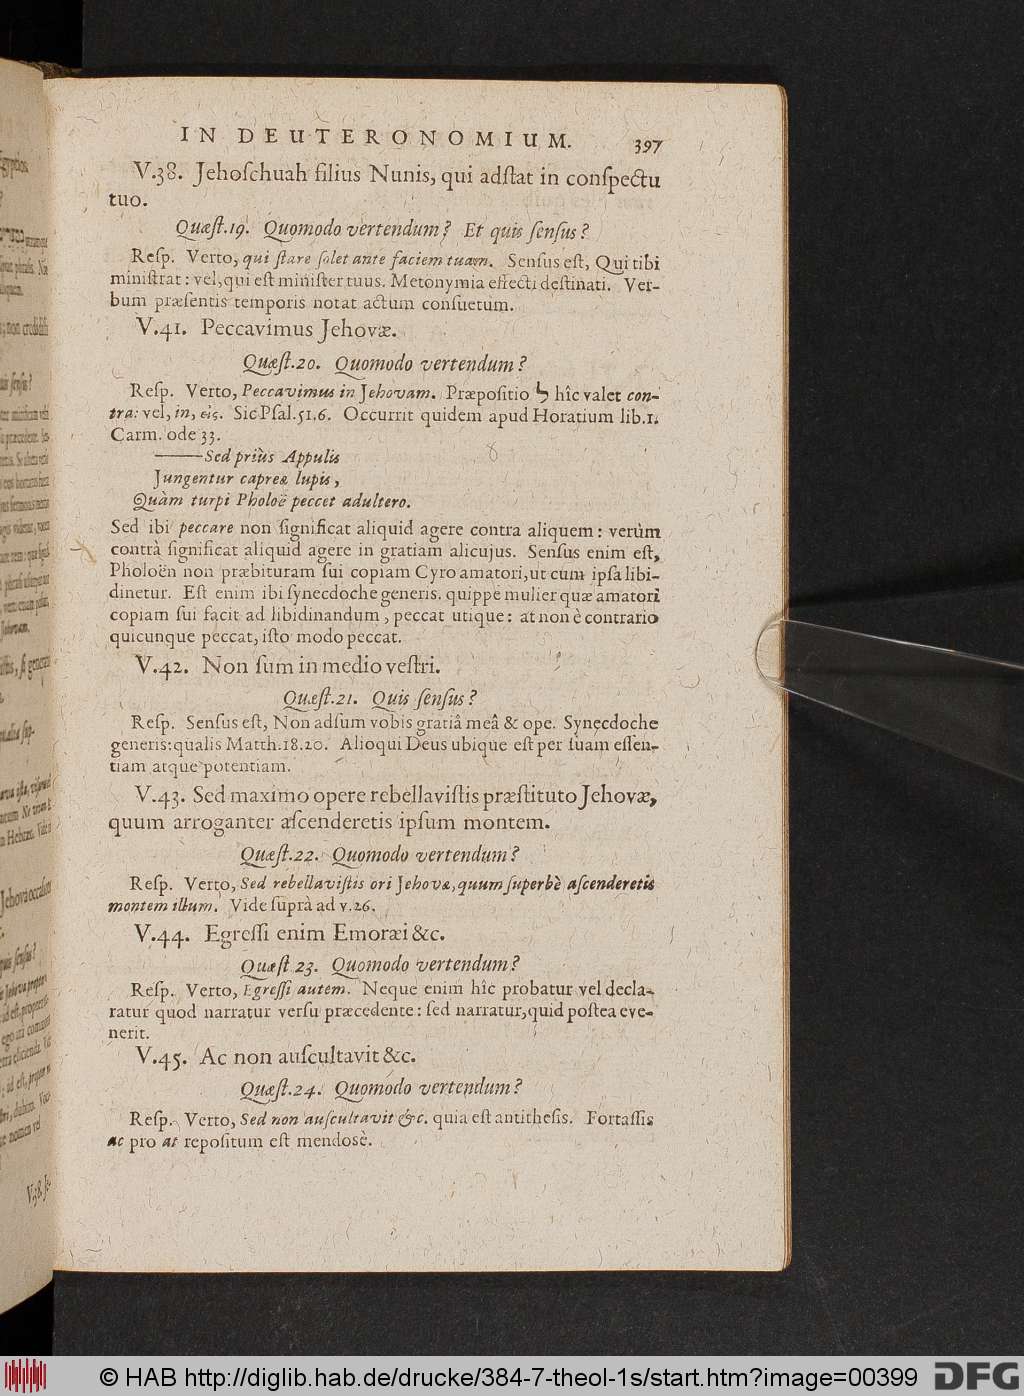 IN DEUTERONOMIUM. 397
V.38. Jehoſchuah filius Nunis, qui adſtat in conſpectu
tuo.
Quæſt.19. Quomodo vertendum? Et quis ſenſus?
Reſp. Verto, qui ſtare ſolet ante faciem tuam. Senſus eſt, Qui tibi
miniſtrat: vel, qui eſt miniſter tuus. Metonymia effecti deſtinati. Ver-
bum præſentis temporis notat actum conſuetum.
V.41. Peccavimus Jehovæ.
Quæſt.20. Quomodo vertendum?
Reſp. Verto, Peccavimus in Jehovam. Præpoſitio ל hîc valet con-
tra: vel, in, εἰς. Sic Pſal.51.6. Occurrit quidem apud Horatium lib.1.
Carm. ode 33.
——Sed priùs Appulis
Jungentur capreæ lupis,
Quàm turpi Pholoë peccet adultero.
Sed ibi peccare non ſignificat aliquid agere contra aliquem: verùm
contrà ſignificat aliquid agere in gratiam alicujus. Senſus enim eſt,
Pholoën non præbituram ſui copiam Cyro amatori, ut cum ipſa libi-
dinetur. Eſt enim ibi ſynecdoche generis. quippe mulier quæ amatori
copiam ſui facit ad libidinandum, peccat utique: at non è contrario
quicunque peccat, iſto modo peccat.
V.42. Non ſum in medio veſtri.
Quæſt.21. Quis ſenſus?
Reſp. Senſus eſt, Non adſum vobis gratiâ meâ & ope. Synecdoche
generis: qualis Matth.18.20. Alioqui Deus ubique eſt per ſuam eſſen-
tiam atque potentiam.
V.43. Sed maximo opere rebellaviſtis præſtituto Jehovæ,
quum arroganter aſcenderetis ipſum montem.
Quæſt.22. Quomodo vertendum?
Reſp. Verto, Sed rebellaviſtis ori Jehovæ, quum ſuperbè aſcenderetis
montem illum. Vide ſuprà ad v.26.
V.44. Egreſſi enim Emoræi &c.
Quæſt 23. Quomodo vertendum?
Reſp. Verto, Egreſſi autem. Neque enim hîc probatur vel decla-
ratur quod narratur verſu præcedente: ſed narratur, quid poſtea eve-
nerit.
V.45. Ac non auſcultavit &c.
Quæſt.24. Quomodo vertendum?
Reſp. Verto, Sed non auſcultavit &c. quia eſt antitheſis. Fortaſſis
ac pro at repoſitum eſt mendosè.
© HAB http://diglib.hab.de/drucke/384-7-theol-1s/start.htm?image=00399
DFG